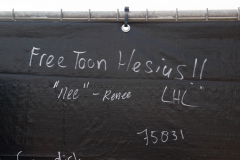 Free Toon Hesius!!
"Nee" - Renee LHL
75031